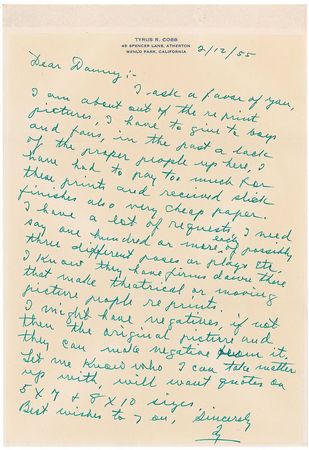 TYRUS R. COBB
48 SPENCER LANE, ATHERTON
MENLO PARK, CALIFORNIA
2/12/55
Dear Danny;-
I ask a favor of you,
I am about out of the reprint
pictures, I have to give to boys
and fans, in the past a lack
of the proper people up here, I
have had to pay too much for
these prints and received slick
finishes also very cheap paper.
I have a lot of requests, I need
say one hundred or more, of each possibly
three different poses or plays etc,
I know they have firms down there
that make theatrical or moving
picture people re prints.
I might have negatives, if not
then the original picture and
they can make negative from it.
Let me know who I can take matter
up with, will want quotes on
5 X 7 & 8 X 10 sizes.
Best wishes to you, Sincerely
Ty